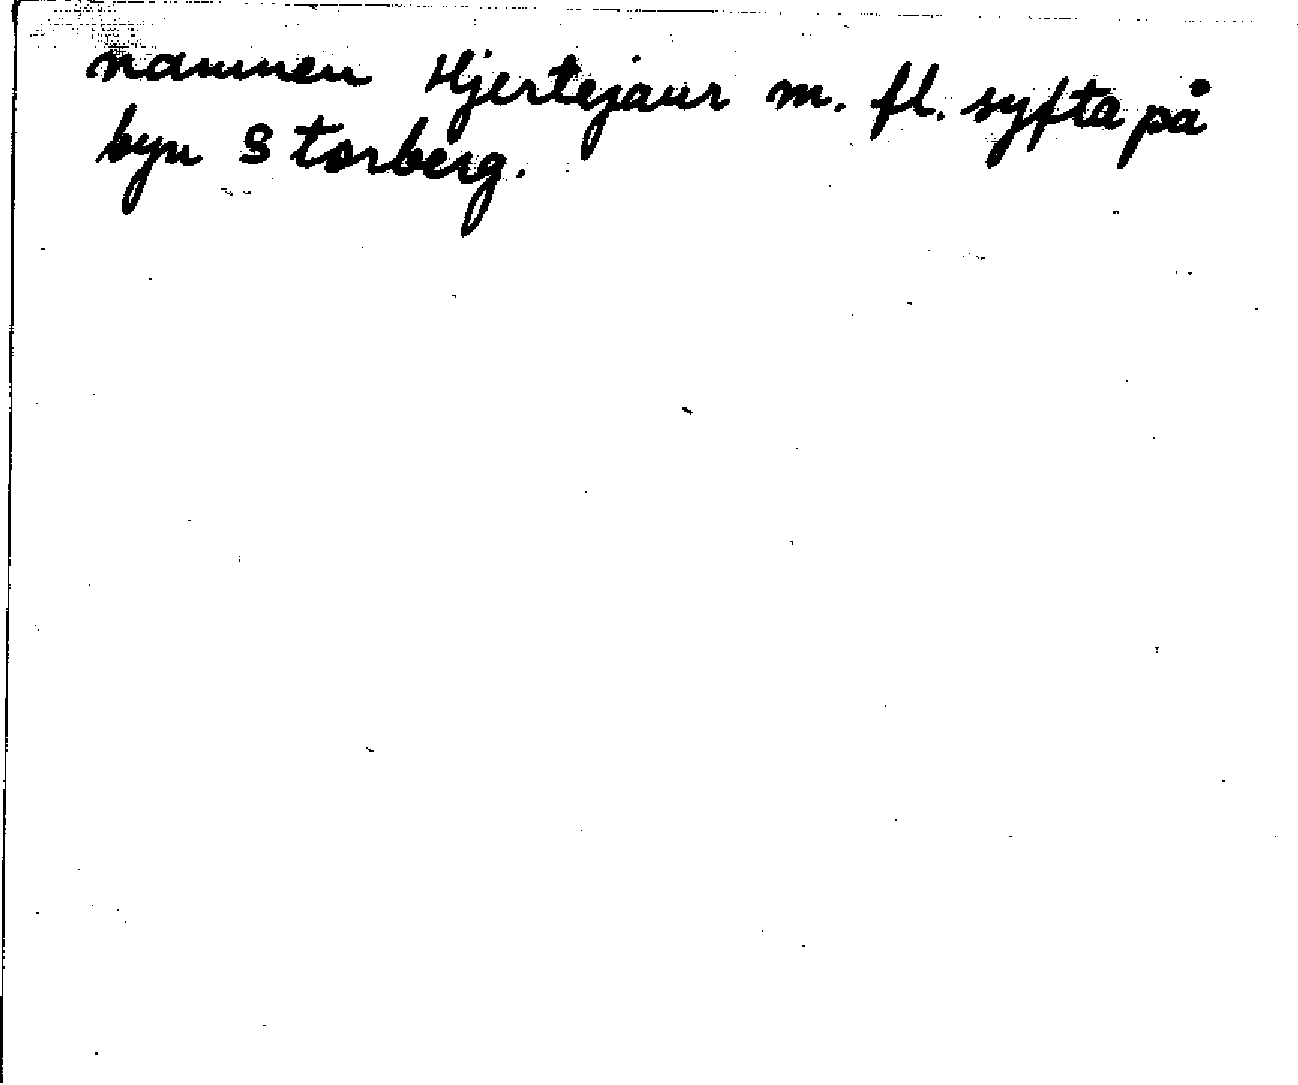 namnen Hjertejaur m. fl. syfta på
byn Storberg.